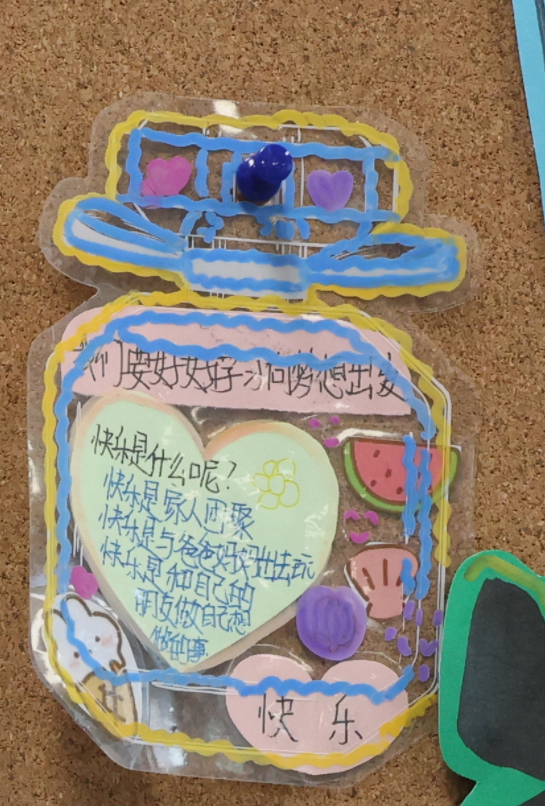 我们要好好学习向梦想出发
快乐是什么呢？
快乐是家人团聚
快乐是与爸爸妈妈出去玩
快乐是和自己的
朋友做自己想
做的事
快乐